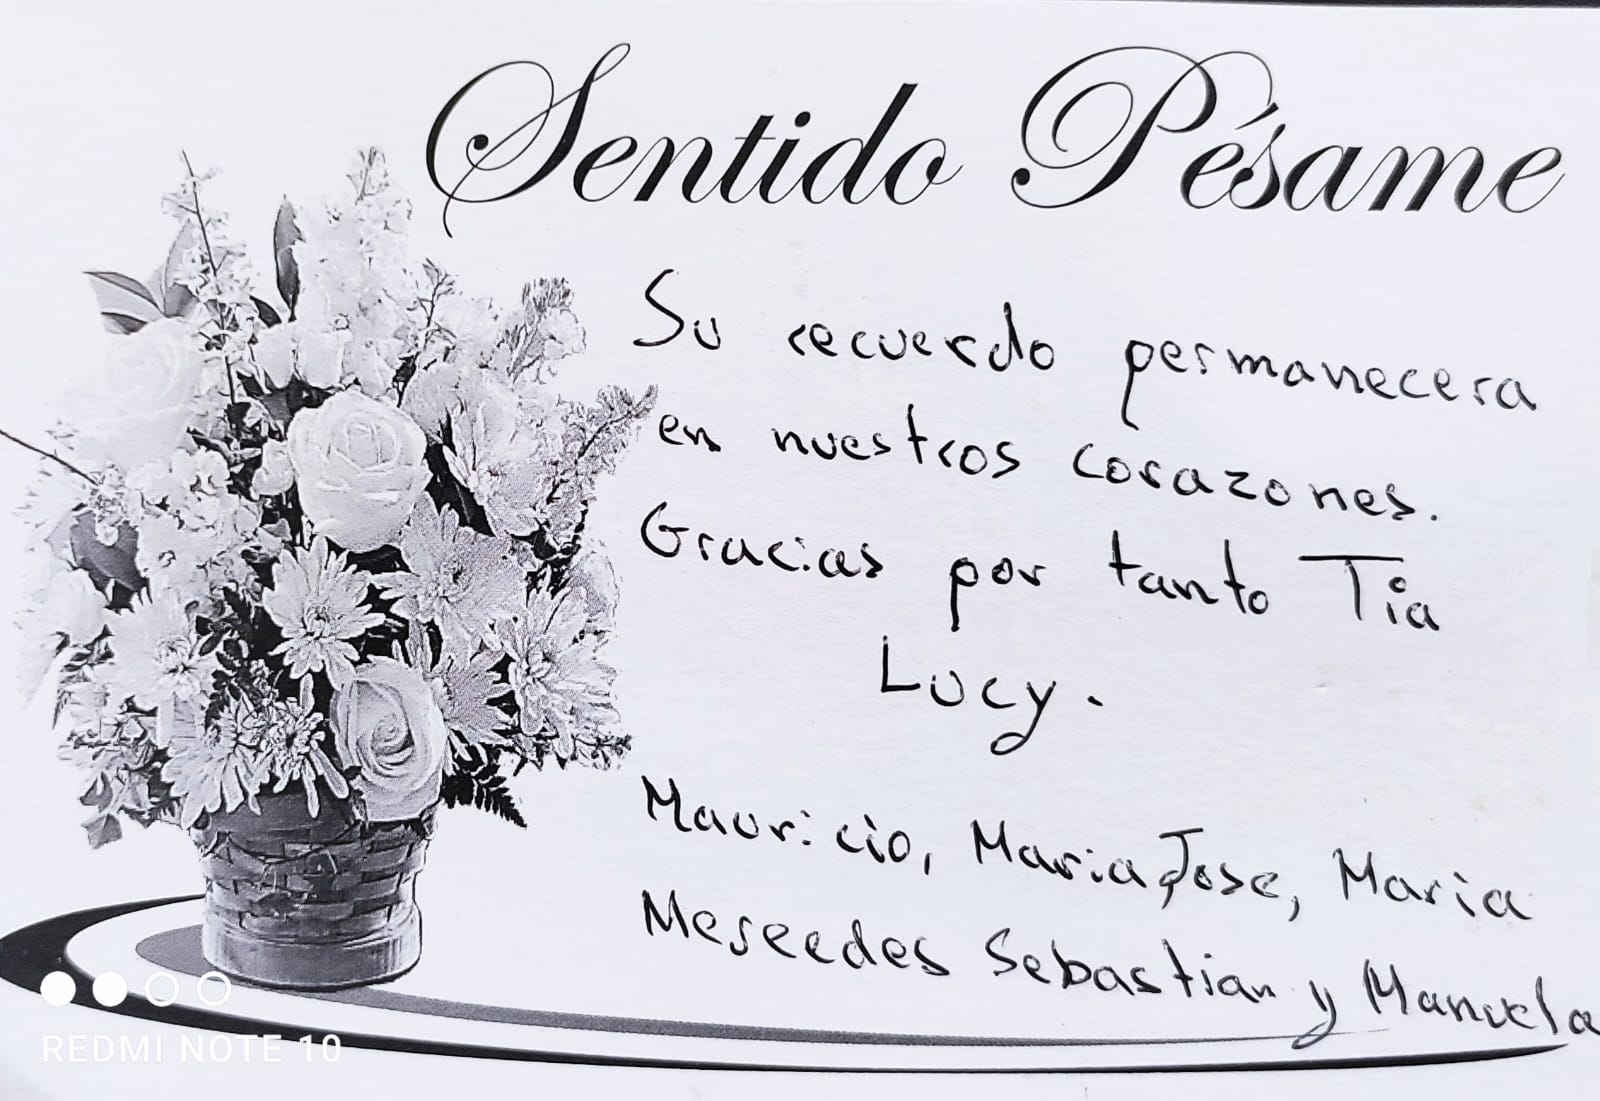 Sentido Pésame
Su recuerdo permanecera
en nuestros corazones.
Gracias por tanto Tia
Lucy.
Mauricio, Maria Jose, Maria
Mercedes Sebastian y Manuela
REDMI NOTE 10